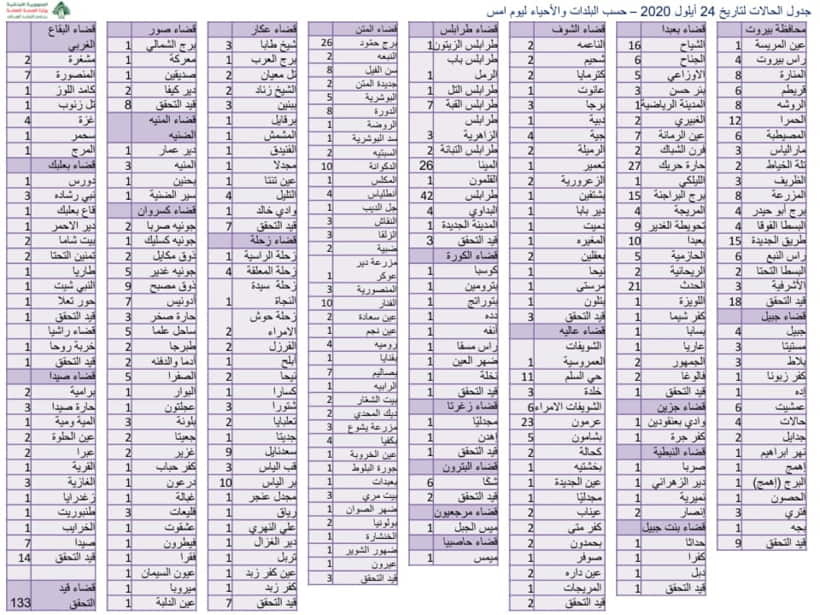 جدول الحالات لتاريخ 24 أيلول 2020 – حسب البلدات والأحياء ليوم امس
الجمهورية اللبنانية
وزارة الصحة العامة
محافظة بيروت
عين المريسة 1
راس بيروت 4
المنارة 8
قريطم 6
الروشه 8
الحمرا 12
المصيطبة 6
مارالياس 3
تلة الخياط 2
الظريف 3
المزرعة 8
برج أبو حيدر 4
البسطا الفوقا 4
طريق الجديدة 15
راس النبع 6
البسطا التحتا 2
الأشرفية 3
قيد التحقق 18
قضاء جبيل
جبيل 4
مستيتا 3
بلاط 3
كفر زبونا 1
إده 1
عمشيت 6
حالات 4
جدايل 2
نهر ابراهيم 1
إهمج 1
البرج (إهمج) 1
الحصون 1
فتري 3
بجه 1
قيد التحقق 9
قضاء بعبدا
الشياح 16
الجناح 6
الاوزاعي 5
بئر حسن 3
المدينة الرياضية 1
الغبيري 2
عين الرمانة 7
فرن الشباك 2
حارة حريك 27
الليلكي 1
برج البراجنة 15
المريجة 4
تحويطة الغدير 9
بعبدا 10
الحازمية 5
الريحانية 2
الحدث 21
اللويزة 1
كفر شيما 1
بسابا 1
عاريا 1
الجمهور 2
فالوغا 2
قيد التحقق 1
قضاء جزين
وادي بعنقودين 1
كفر جرة 1
قضاء النبطية
صربا 1
دير الزهراني 1
نميرية 1
إنصار 2
قضاء بنت جبيل
حداثا 1
كفرا 1
دبل 1
قيد التحقق 1
قضاء الشوف
الناعمه 2
شحيم 2
كترمايا 2
عانوت 1
برجا 3
دبية 1
جية 4
الرميلة 2
تعمير 1
الزعرورية 2
بشتفين 1
دير بابا 1
دميت 1
المغيره 1
بعقلين 2
نيحا 1
مرستى 1
بتلون 1
قيد التحقق 3
قضاء عاليه
الشويفات
العمروسية 1
حي السلم 11
خلدة 3
الشويفات الامراء 6
عرمون 23
بشامون 5
كحالة 2
بخشتيه 1
عين الجديدة 1
مجدليّا 1
عيناب 2
كفر متى 2
بحمدون 2
صوفر 1
عين داره 2
المريجات 1
قيد التحقق 2
قضاء طرابلس
طرابلس الزيتون 1
طرابلس باب
الرمل 1
طرابلس التل 1
طرابلس القبة 7
طرابلس
الزاهرية 3
طرابلس التبانة 2
المينا 26
القلمون 1
طرابلس 42
البداوي 4
المدينة الجديدة 1
قيد التحقق 3
قضاء الكورة
كوسبا 1
بترومين 1
بتوراتج 1
دده 1
أنفه 1
راس مسقا 1
ضهر العين 1
نخلة 1
قيد التحقق 1
قضاء زغرتا
مجدليّا 1
إهدن 1
قيد التحقق 1
قضاء البترون
شكّا 6
قيد التحقق 2
قضاء مرجعيون
ميس الجبل 1
قضاء حاصبيا
ميمس 1
قضاء المتن
برج حمّود 26
النبعه 2
سن الفيل 8
جديدة المتن 2
البوشرية 5
الدورة 8
الروضة 1
سد البوشرية 1
السبتيه 2
الدكوانة 10
المكلس 1
انطلياس 4
جل الديب 1
النقاش 3
الزلقا 3
ضبية 2
مزرعة دير
عوكر 1
المنصورية 3
الفنار 10
عين سعادة 2
عين نجم 1
روميه 4
بقنايا 1
بصاليم 7
الرابيه 1
بيت الشعار 2
ديك المحدي 2
مزرعة يشوع 3
بكفيا 4
عين الخروبة 1
جورة البلوط 1
بعبدات 1
بيت مري 3
ضهر الصوان 1
بولونيا 2
الخنشارة 1
ضهور الشوير 1
عيرون 1
قيد التحقق 3
قضاء عكار
شيخ طابا 3
برج العرب 1
تل معيان 2
الشيخ زناد 2
ببنين 3
برقايل 1
المشمش 1
القنيدق 1
مجدلا 1
عين تنتا 1
التليل 4
وادي خالد 1
قيد التحقق 7
قضاء زحلة
زحلة الراسية 1
زحلة المعلقة 4
زحلة سيدة
النجاة 1
زحلة حوش
الامراء 2
الفرزل 2
أبلح 1
نيحا 2
كسارا 1
شتورا 3
تعلبايا 2
جديتا 1
سعدنايل 9
قب الياس 3
بر الياس 10
مجدل عنجر 1
رياق 1
علي النهري 1
دير الغزال 1
تربل 1
عين كفر زبد 1
كفر زبد 1
قيد التحقق 7
قضاء صور
برج الشمالي 1
معركة 1
صديقين 1
دير كيفا 2
قيد التحقق 8
قضاء المنيه
الضنيه
دير عمار 1
المنيه 3
بحنين 1
سير الضنية 1
قضاء كسروان
جونيه صربا 2
جونيه كسليك 1
ذوق مكايل 2
جونيه غدير 5
ذوق مصبح 9
أدونيس 7
حارة صخر 3
ساحل علما 5
طبرجا 2
أدما والدفنه 2
الصفرا 5
البوار 1
عجلتون 1
بلونة 3
جعيتا 2
غزير 2
كفر حباب 1
درعون 1
غبالة 1
قليعات 3
عشقوت 1
فيطرون 1
فقرا 1
عيون السيمان 1
ميروبا 1
عين الدلبة 1
قضاء البقاع
الغربي
مشغرة 2
المنصورة 7
كامد اللوز 1
تل زنوب 1
غزة 4
سحمر 1
المرج 1
قضاء بعلبك
دورس 1
نبي رشاده 3
قاع بعلبك 1
دير الاحمر 1
بيت شاما 2
تمنين التحتا 2
طاريا 1
النبي شيت 1
حور تعلا 1
قيد التحقق 1
قضاء راشيا
خربة روحا 1
قيد التحقق 1
قضاء صيدا
برامية 2
حارة صيدا 3
المية ومية 1
عين الحلوة 2
عبرا 2
القرية 1
الغازية 3
زغدرايا 1
طنبوريت 1
الخرايب 1
صيدا 7
قيد التحقق 14
قضاء قيد
التحقق 133